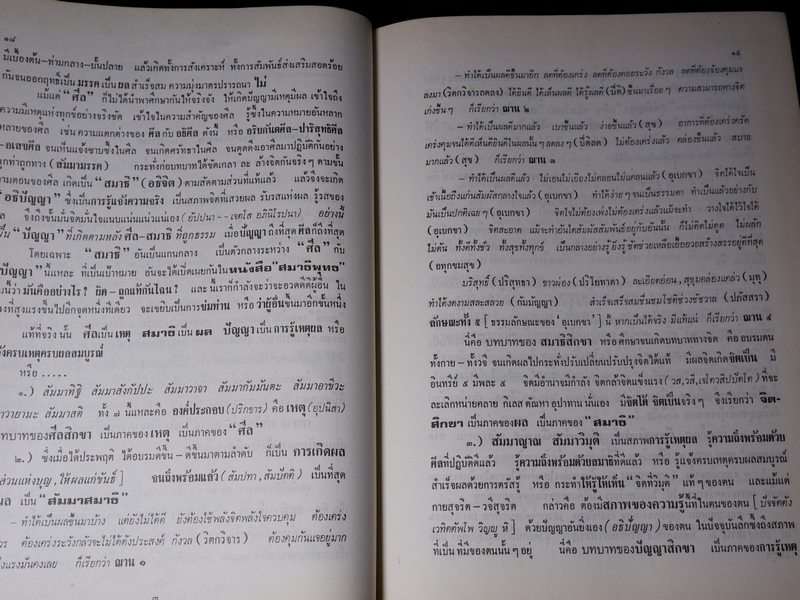 ๑๘
มีเบื้องต้น-ท่ามกลาง-บั้นปลาย แล้วเกิดทั้งการสังเคราะห์ ทั้งการสัมพันธ์ส่งเสริมสอดร้อย
กันจนออกฤทธิ์เป็น มรรค เป็น ผล สำเร็จสม ความมุ่งมาดปรารถนา ไม่
แม้แต่ "ศีล" ก็ไม่ได้นำพาศึกษากันให้จริงจัง ให้เกิดปัญญามีเหตุมีผล เข้าใจถึง
ความมีเหตุแห่งทุกข์อย่างจริงชัด เข้าใจในความสำคัญของศีล รู้ซึ้งในความหมายอันหลาก
หลายของศีล เช่น ความแตกต่างของ ศีล กับ อธิศีล ดังนี้ หรือ อริยกันตศีล-ปาริสุทธิศีล
-อเสขศีล จนเห็นแจ้งซาบซึ้งในศีล จนเกิดศรัทธาในศีล จนดูดดึงเอาศีลมาปฏิบัติกันอย่าง
ถูกท่าถูกทาง (สัมมามรรค) กระทั่งกอปรบทได้ขัดเกลา ละ ล้างจิตกันจริงๆ ตามขั้น
ตามตอนของศีล เกิดเป็น "สมาธิ" (อธิจิต) ตามสัดตามส่วนที่แท้แล้ว แล้วจึงจะเกิด
"อธิปัญญา" ซึ่งเป็นการรู้แจ้งความจริง เป็นสภาพจิตที่เสวยผล รับรสแห่งผล รู้รสของ
ล จึงถึงขั้นมั่นจิตมั่นใจแนบแน่นแน่วแน่เอง (อัปปนา--เจตโส อภินิโรปนา) อย่างนี้
เป็น "ปัญญา" ที่เกิดตามหลัง ศีล-สมาธิ ที่ถูกธรรม เมื่อปัญญาถึงที่สุด ศีลก็ถึงที่สุด
โดยเฉพาะ "สมาธิ" อันเป็นแกนกลาง เป็นตัวกลางระหว่าง "ศีล" กับ
ปัญญา" นี้แหละ ที่เป็นเป้าหมาย อันจะได้เปิดเผยกันในหนังสือ "สมาธิพุทธ"
นี้ว่า มันคืออย่างไร? ผิด-ถูกแท้กันไฉน? และ นี่เราก็กำลังจะว่าจะอวดดีต่อผู้อื่น ใน
ที่สูงแรงขึ้นไปอีกจุดหนึ่งทีเดียว จะเขยิบเป็นการข่มท่าน หรือ ว่าผู้อื่นขึ้นมาอีกขั้นหนึ่ง
แท้ที่จริงนั้น ศีลเป็นเหตุ สมาธิ เป็น ผล ปัญญา เป็น การรู้เหตุผล หรือ
งครบเหตุครบผลสมบูรณ์
หรือ .....
๑.) สัมมาทิฐิ สัมมาสังกัปปะ สัมมาวาจา สัมมากัมมันตะ สัมมาอาชีวะ
าวายามะ สัมมาสติ ทั้ง ๗ นี้แหละคือ องค์ประกอบ (ปริกขาร) คือ เหตุ (อุปนิสา)
บทบาทของศีลสิกขา เป็นภาคของ เหตุ เป็นภาคของ "ศีล"
๒.) ซึ่งเมื่อได้ประพฤติ ได้อบรมดีขึ้น-ดีขึ้นมาตามลำดับ ก็เป็น การเกิดผล
ส่วนแห่งบุญ, ให้ผลแก่ขันธ์] จนถึงพร้อมแล้ว (สัมปทา, สัมปัตติ) เป็นที่สุด
ผล เป็น "สัมมาสมาธิ"
- ทำได้เป็นผลขึ้นมาบ้าง แต่ยังไม่ได้ดี ยังต้องใช้พลังจิตพลังใจควบคุม ต้องเคร่ง
ร ต้องเคร่งระวังกลัวจะไม่ได้ดังประสงค์ กังวล (วิตกวิจาร) ต้องคุมกันแจอยู่มาก
แรงมั่นคงเลย ก็เรียกว่า ฌาน ๑
๑๙
- ทำได้เป็นผลดีขึ้นมาอีก ลดที่ต้องเคร่ง ลดที่ต้องคอยระวัง กังวล ลดที่ต้องจ้องคุมแจ
ลงมา (วิตกวิจารลดลง) ได้ยินดี ได้เห็นผลดี ได้รู้ผลดี (ปีติ) ขึ้นมาเรื่อยๆ ความสามารถทางจิต
เก่งขึ้นๆ ก็เรียกว่า ฌาน ๒
- ทำได้เป็นผลดีมากแล้ว เบาขึ้นแล้ว ง่ายขึ้นแล้ว (สุข) อาการที่ต้องเคร่งครัด
เคร่งคุมจนได้ดีเห็นดียินดีในผลนั้นๆ ลดลงๆ (ปีติลด) ไม่ต้องเคร่งแล้ว คล่องขึ้นแล้ว สบาย
มากแล้ว (สุข) ก็เรียกว่า ฌาน ๓
- ทำได้เป็นผลดีแล้ว ไม่เอนไม่เอียงไม่คลอนไม่แคลนแล้ว (อุเบกขา) จิตได้ใจเป็น
เข้าเนื้อถึงแก่นสัมผัสกลางใจแล้ว (อุเบกขา) ทำได้ง่ายๆ จนเป็นธรรมดา ทำเป็นแล้วอย่างกับ
มันเป็นปกติเฉยๆ (อุเบกขา) จิตใจไม่ต้องเพ่งไม่ต้องเคร่งแล้วแม้จะทำ วางใจได้ไว้ใจได้
(อุเบกขา) จิตสะอาด แม้จะทำอันใดสัมผัสสัมพันธ์อยู่กับอันนั้น ก็ไม่ติดไม่ดูด ไม่ผลัก
ไม่ดัน ทั้งดีทั้งชั่ว ทั้งสุขทั้งทุกข์ เป็นกลางอย่างรู้ยิ่งรู้ชัดช่วยเหลือเอื้ออวยสร้างสรรอยู่ดีที่สุด
(อทุกขมสุข)
บริสุทธิ์ (ปริสุทธา) ขาวผ่อง (ปริโยทาตา) ละเอียดอ่อน, สุขุมคล่องแคล่ว (มุทุ)
ทำได้งดงามสละสลวย (กัมมัญญา) สำเร็จเสร็จสมชื่นชมโชติช่วงชัชวาล (ปภัสสรา)
ลักษณะทั้ง ๕ [ ธรรมลักษณะของ 'อุเบกขา'] นี้ หากเป็นได้จริง มีแท้แน่ ก็เรียกว่า ฌาน ๔
นี่คือ บทบาทของ สมาธิสิกขา หรือศึกษาจนเกิดบทบาททางจิต คือ อบรมตน
ทั้งกาย-ทั้งวจี จนเกิดผลไปกระทั่งปรับเปลี่ยนปรับปรุงจิตได้แท้ มีผลจิตเกิดจิตเป็น มี
อินทรีย์ ๕ มีพละ ๕ จิตมีอำนาจมีกำลัง จิตกล้าจิตแข็งแรง (วส,วสี,เจโตวสิปปัตโต) ที่จะ
ละเลิกหน่ายคลาย กิเลส ตัณหา อุปาทาน นั่นเอง มี จิตได้ จิตเป็นจริงๆ จึงเรียกว่า จิต-
สิกขา เป็นภาคของผล เป็นภาคของ "สมาธิ"
๓.) สัมมาญาณ สัมมาวิมุติ เป็นสภาพการรู้เหตุผล รู้ความถึงพร้อมด้วย
ศีลที่ปฏิบัติดีแล้ว รู้ความถึงพร้อมด้วยสมาธิที่ดีแล้ว หรือ รู้แจ้งครบเหตุครบผลสมบูรณ์
สำเร็จผลด้วยการตรัสรู้ หรือ กระทำให้รู้ให้เห็น "จิตที่วิมุติ" แท้ๆ ของตน และมีแต่
กายสุจริต-วจีสุจริต กล่าวคือ ต้องมีสภาพของความรู้ที่ในตนของตน [ ปัจจัตตัง
เวทิตัพโพ วิญญูหิ ] ด้วยปัญญาอันยิ่งเอง (อธิปัญญา) ของตน ในปัจจุบันลึกซึ้งถึงสภาพ
ที่เป็น ที่มีของตนนั้นๆ อยู่ นี่คือ บทบาทของปัญญาสิกขา เป็นภาคของการรู้เหตุ